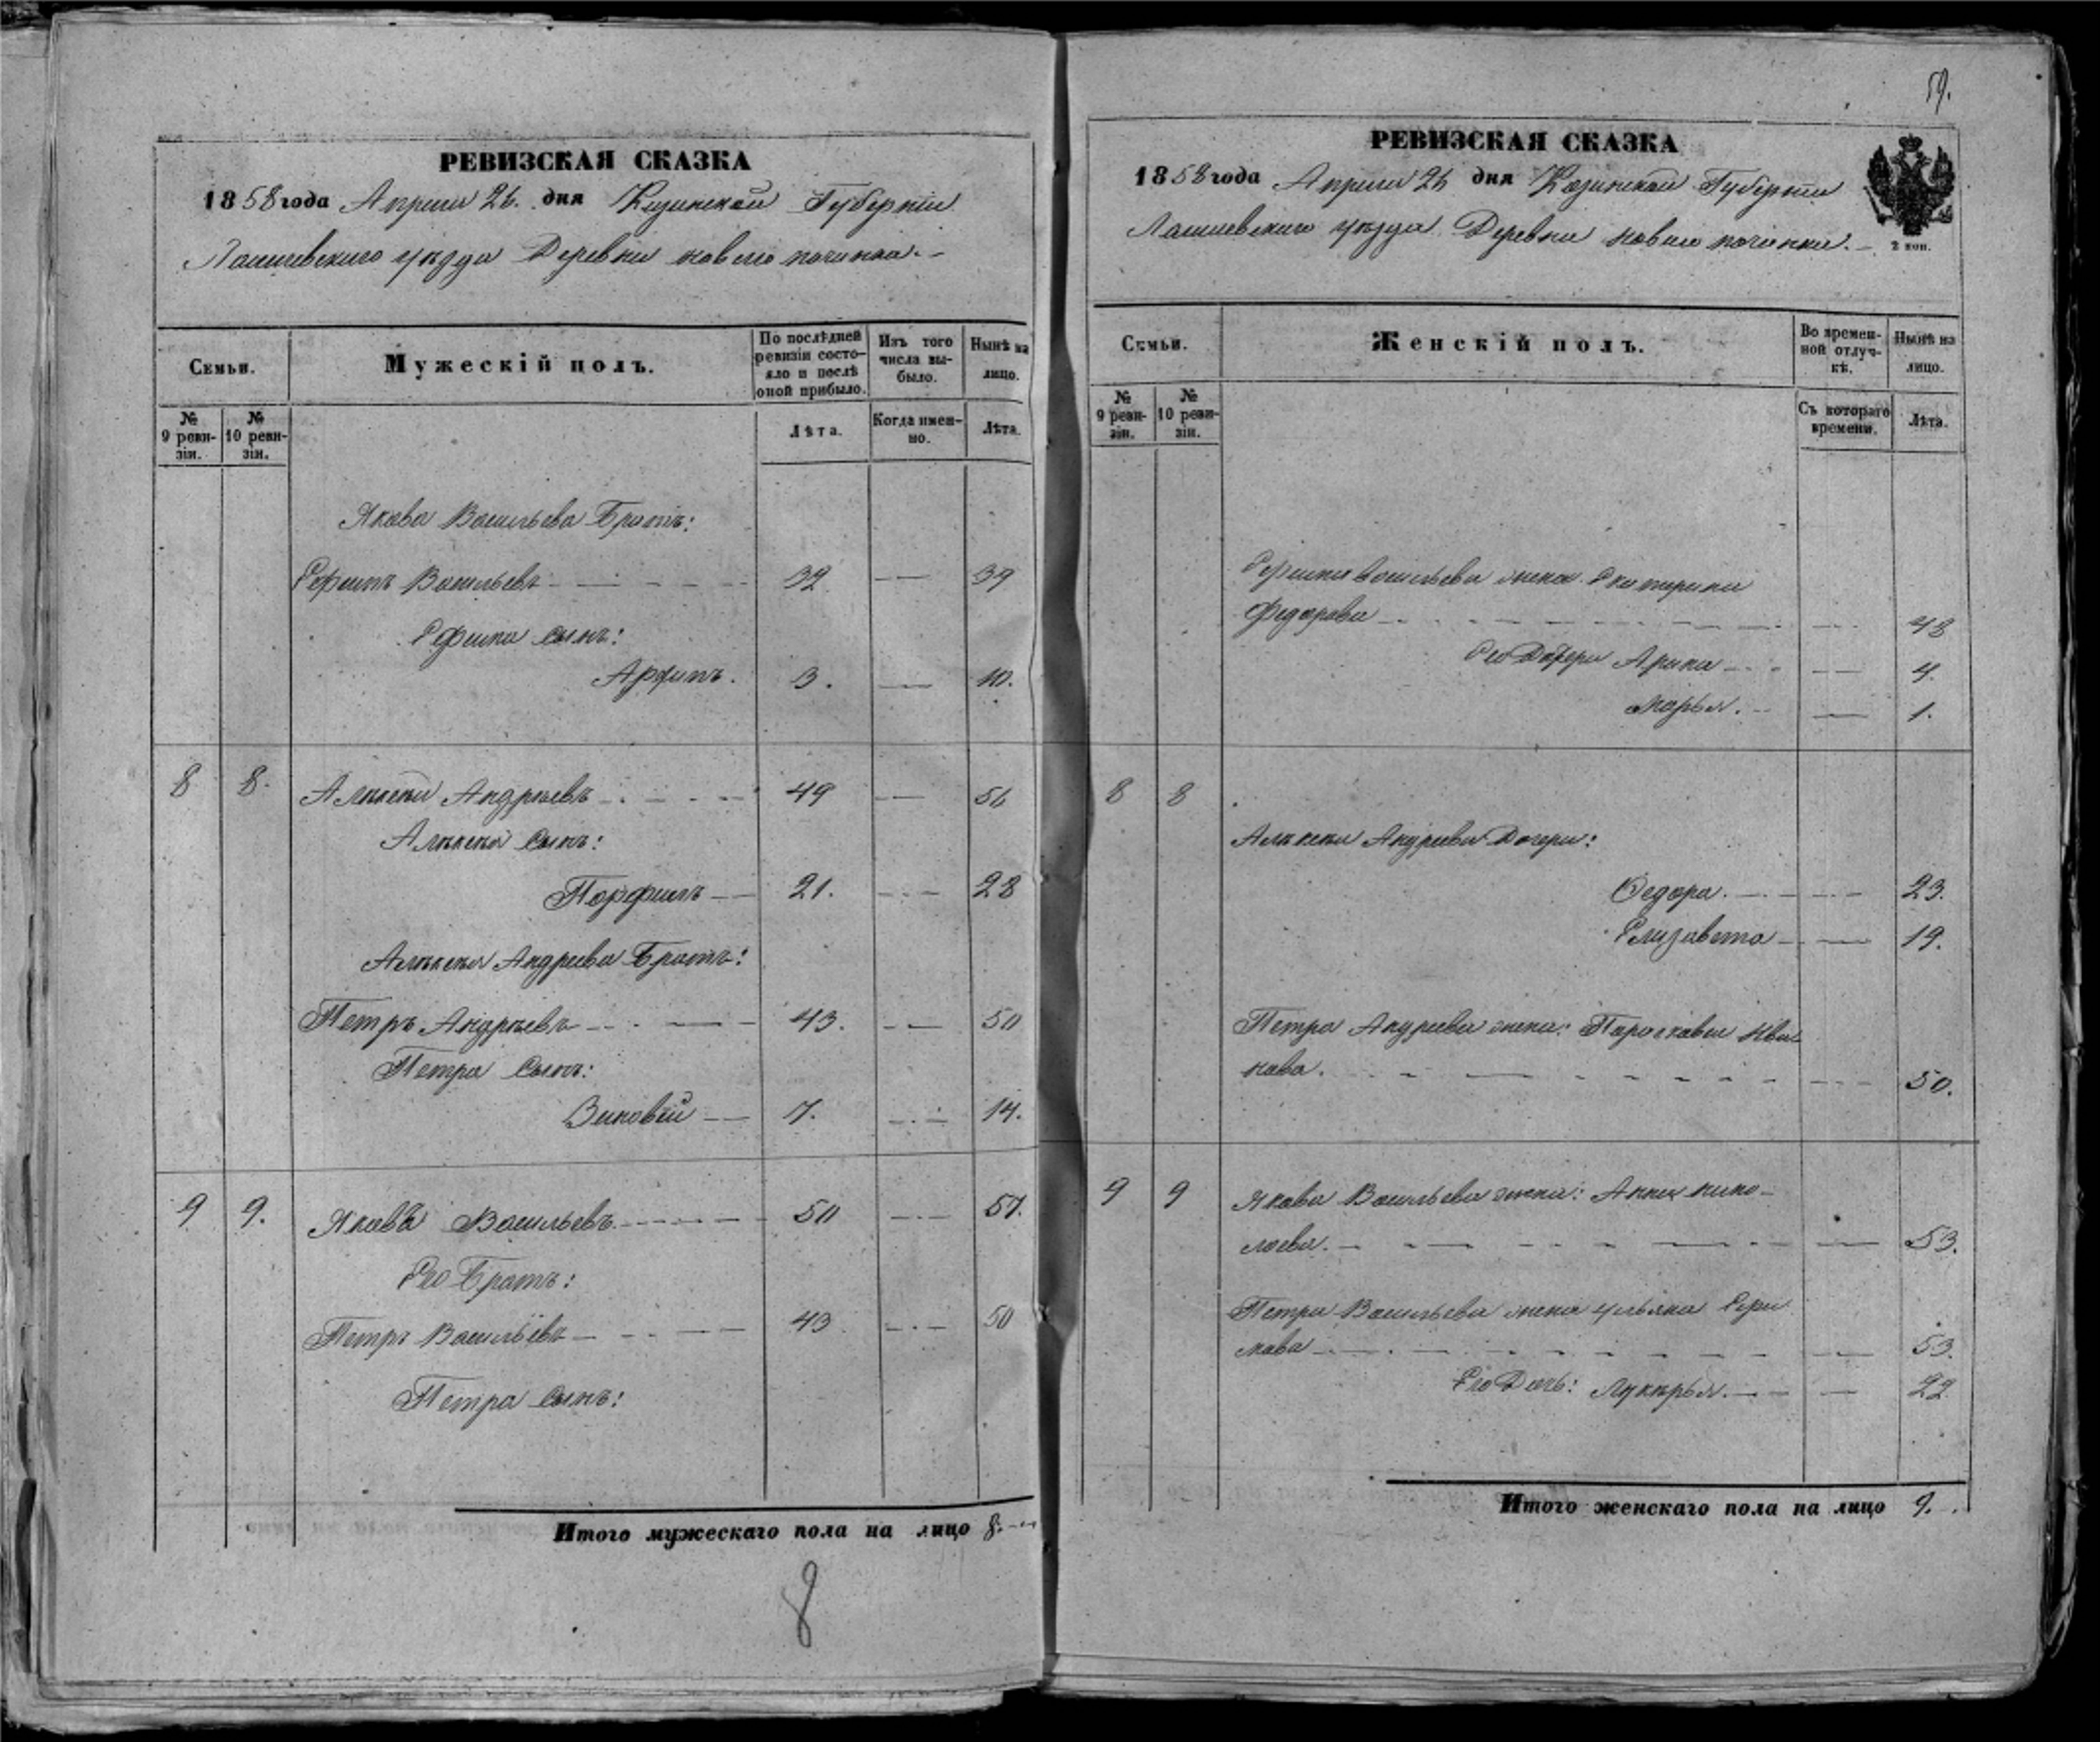 РЕВИЗСКАЯ СКАЗКА
1858 года Апреля 26. дня Казанской Губерніи
Лаишевскаго уѣзда Деревни новаго починка.
Семьи.
Мужескій полъ.
По послѣдней ревизіи состояло и послѣ оной прибыло.
Изъ того числа выбыло.
Нынѣ на лицо.
№ 9 ревизіи.
№ 10 ревизіи.
Лѣта.
Когда именно.
Лѣта.
Якова Васильева Братъ:
Ефимъ Васильевъ 32 — 39
Ефима Сынъ:
Архипъ. 3. — 10.
8 8. Алѣксѣй Андрѣевъ 49 — 56
Алѣксѣя Сынъ:
Порфилъ 21. — 28
Алѣксѣя Андреева Братъ:
Петръ Андрѣевъ 43. — 50
Петра Сынъ:
Зиновей 7. — 14.
9 9. Яковъ Васильевъ 50 — 57.
Его Братъ:
Петръ Васильевъ 43 — 50
Петра Сынъ:
Итого мужескаго пола на лицо 8.
8
59.
РЕВИЗСКАЯ СКАЗКА
1858 года Апреля 26 дня Казанской Губерніи
Лаишевскаго уѣзда Деревни новаго починка.
2 коп.
Семьи.
Женскій полъ.
Во временной отлучкѣ.
Нынѣ на лицо.
№ 9 ревизіи.
№ 10 ревизіи.
Съ котораго времени.
Лѣта.
Ефима Васильева жена Екатерина
Федорова — 48
Его Дочери Арина — 4.
Марья. — 1.
8 8
Алѣксѣя Андреева Дочери:
Федора. — 23.
Елизавета — 19.
Петра Андреева жена: Парасковья Ива
нова. — 50.
9 9 Якова Васильева жена: Анна нико-
лаева. — 53.
Петра Васильева жена Ульяна Ефи
мова — 53.
Его Дочь: Лукѣрья. — 22
Итого женскаго пола на лицо 9.